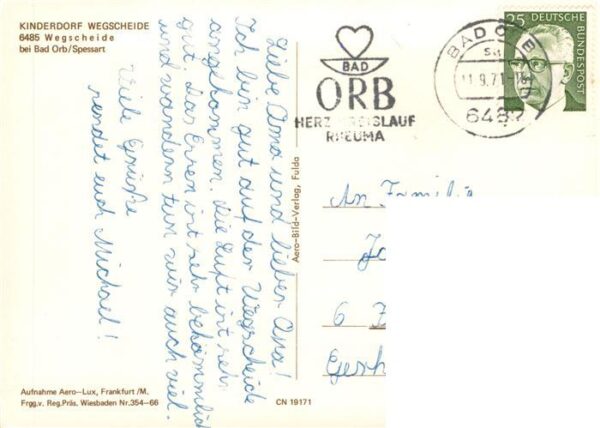 KINDERDORF WEGSCHEIDE
6485 Wegscheide
bei Bad Orb/Spessart
Liebe Oma und lieber Opa!
Ich bin gut auf der Wegscheide
angekommen. Die Luft ist sehr
gut. Das Essen ist sehr bekömmlich
und wandern tun wir auch viel.
Viele Grüße
sendet euch Michael!
Aufnahme Aero-Lux, Frankfurt /M.
Frgg.v. Reg.Präs. Wiesbaden Nr.354-66
Aero-Bild-Verlag, Fulda
CN 19171
BAD
ORB
HERZ KREISLAUF
RHEUMA
BAD ORB
6482
25 DEUTSCHE
BUNDESPOST
An Familie
6